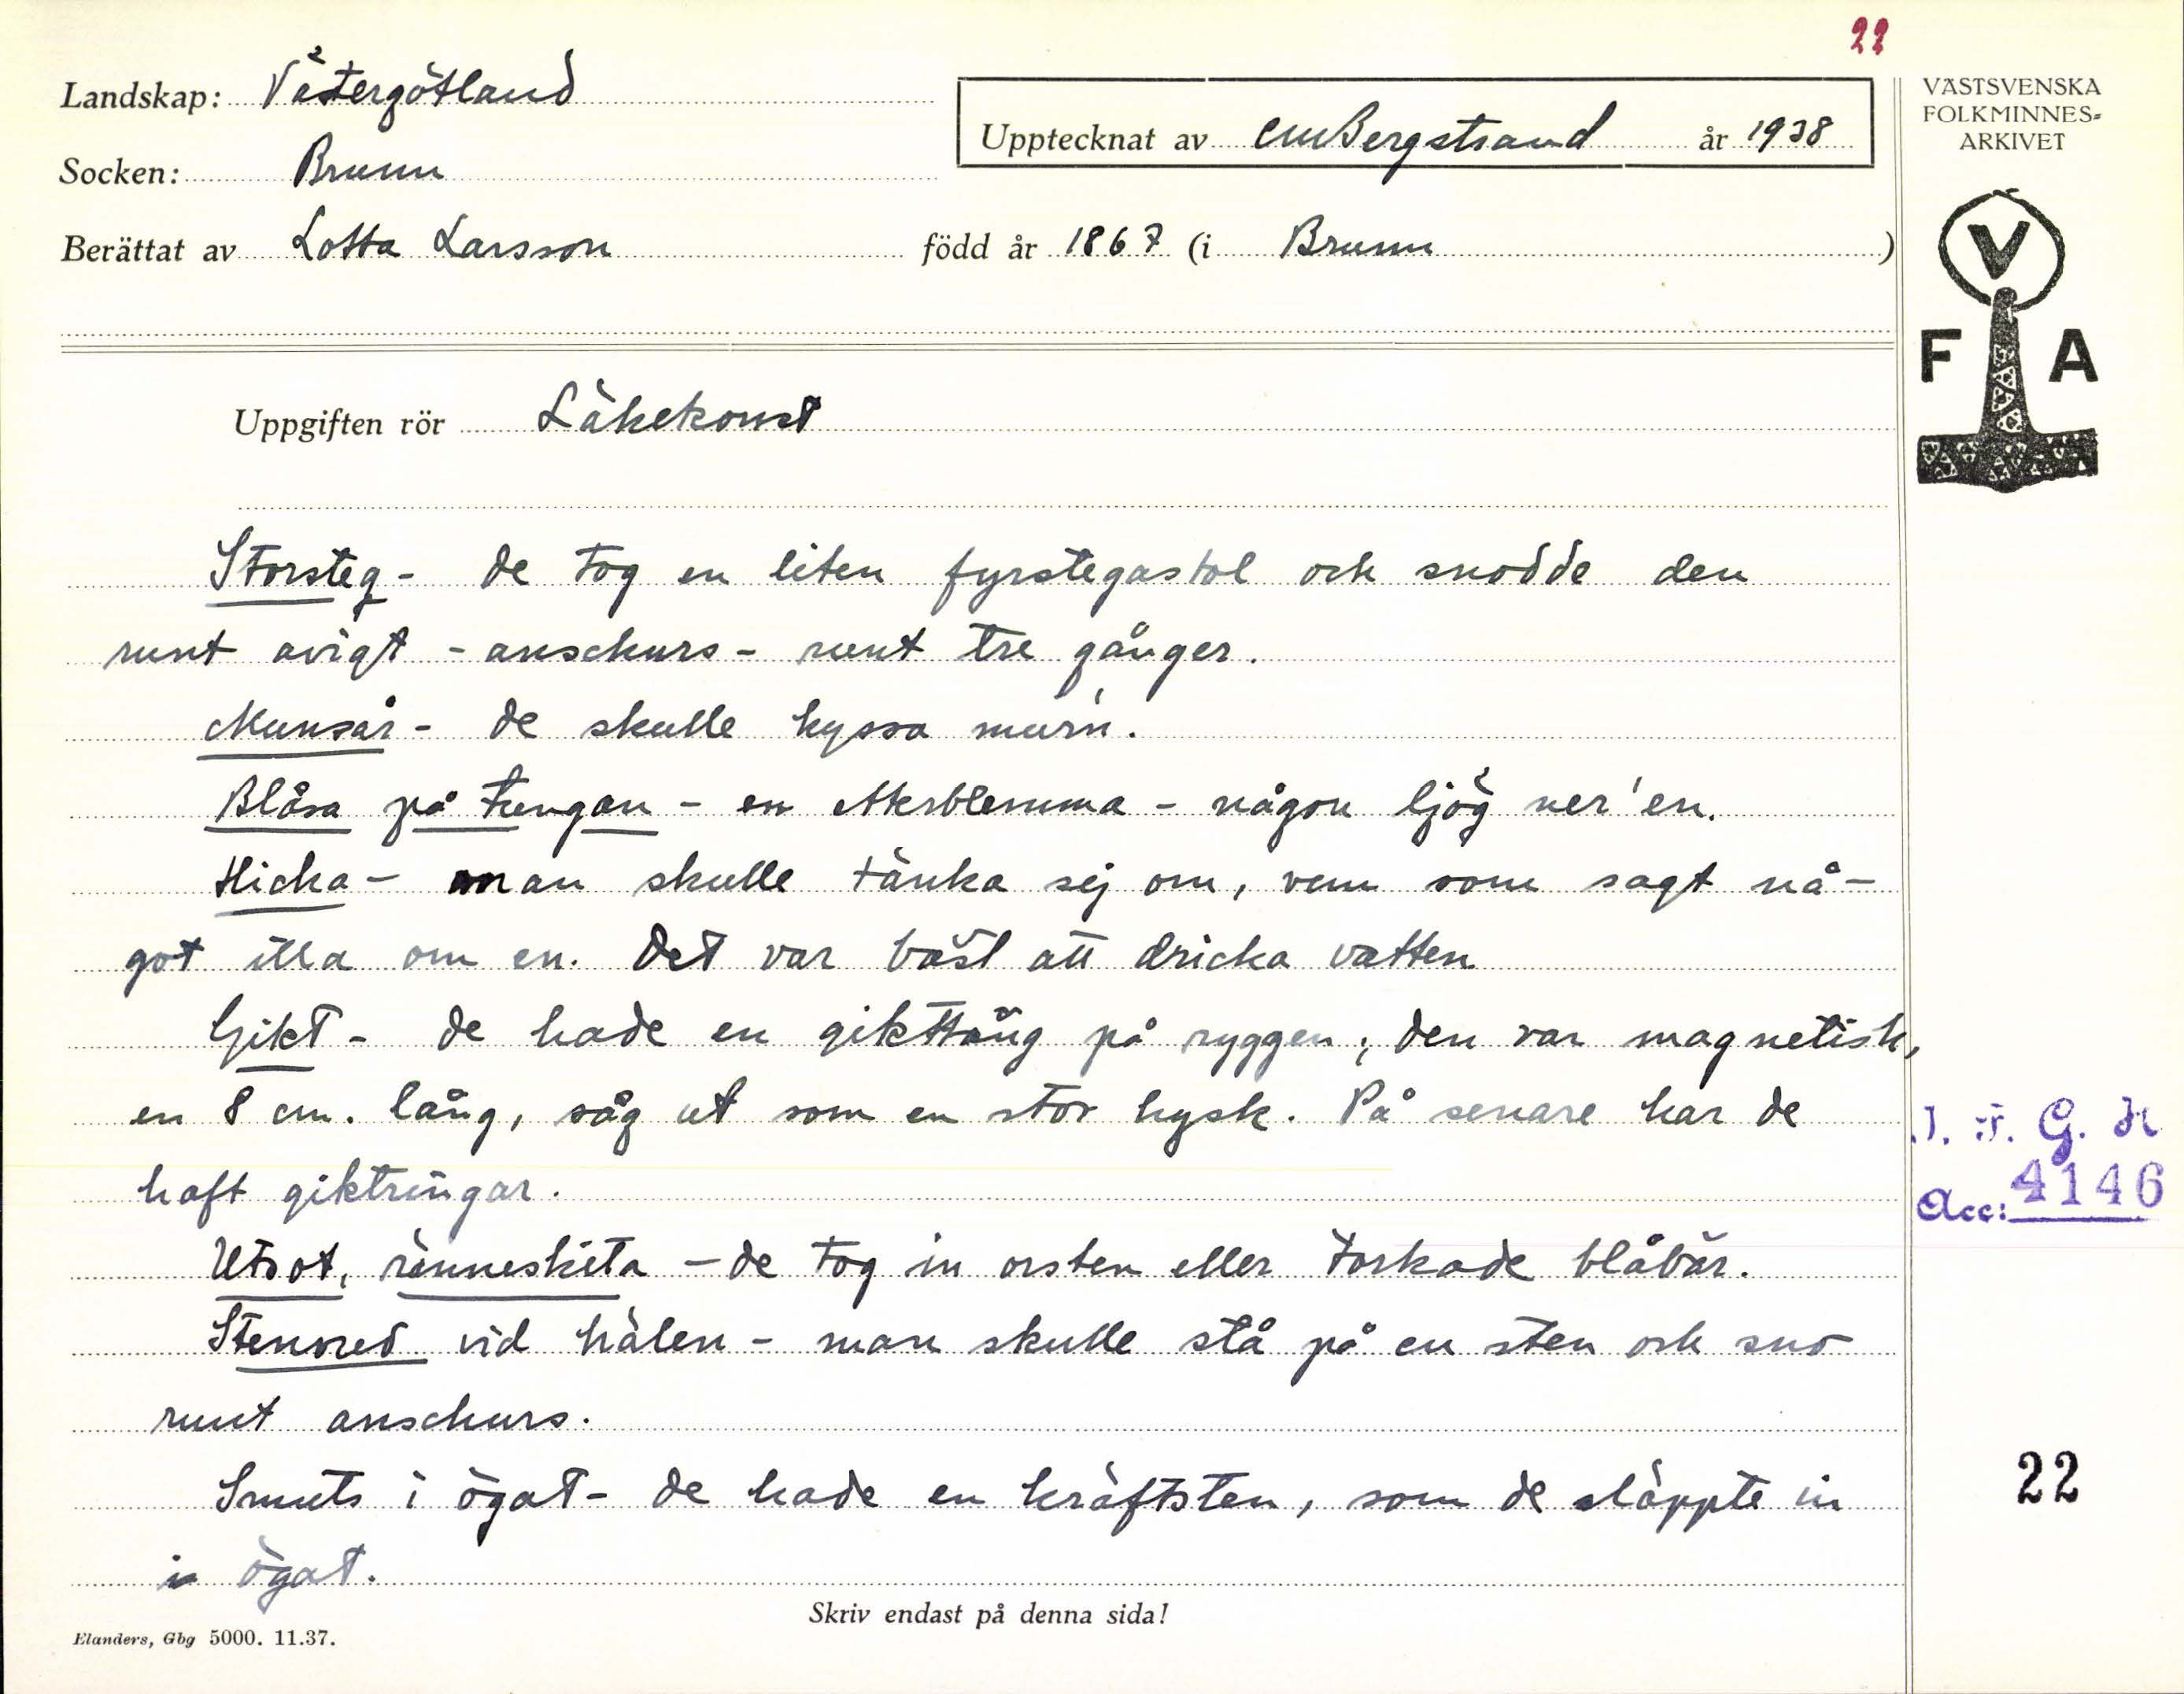 22
Landskap: Västergötland
Upptecknat av CMBergstrand år 1938
Socken: Brunn
Berättat av Lotta Larsson född år 1867 (i Brunn )
VÄSTSVENSKA
FOLKMINNES-
ARKIVET
V
F A
Uppgiften rör Läkekonst
Storsteg - de tog en liten fyrstegastol och snodde den
runt avigt - anschurs - runt tre gånger.
Munsår - de skulle kyssa mur'n.
Blåsa på tungan - en - någon ljög ner'en.
Hicka - man skulle tänka sej om, vem som sagt nå-
got illa om en. Det var bäst att dricka vatten
Gikt - de hade en gikttång på ryggen; den var magnetisk,
en 8 cm. lång, såg ut som en stor hysk. På senare har de
haft giktringar.
Utsot, ränneskita - de tog in orsten eller torkade blåbär.
Stenvred vid hälen - man skulle stå på en sten och sno
runt anschurs.
Smuts i ögat - de hade en kräftsten, som de släppte in
i ögat.
I. F. G. H
Acc: 4146
22
Skriv endast på denna sida!
Elanders, Gbg 5000. 11.37.